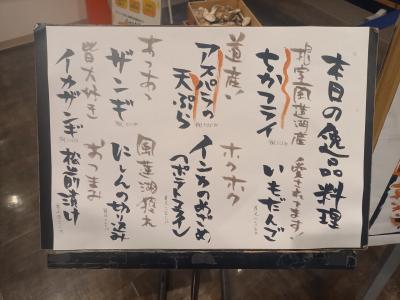 本日の逸品料理
根室風蓮湖産
ちかフライ
愛されてます!
いもだんご
道産!
アスパラの
天ぷら
ホクホク
インカのめざめ
(ポテトフライ)
あつあつ
ザンギ
風蓮湖獲れ
にしんの切り込み
皆大好き
イカザンギ
おつまみ
松前漬け